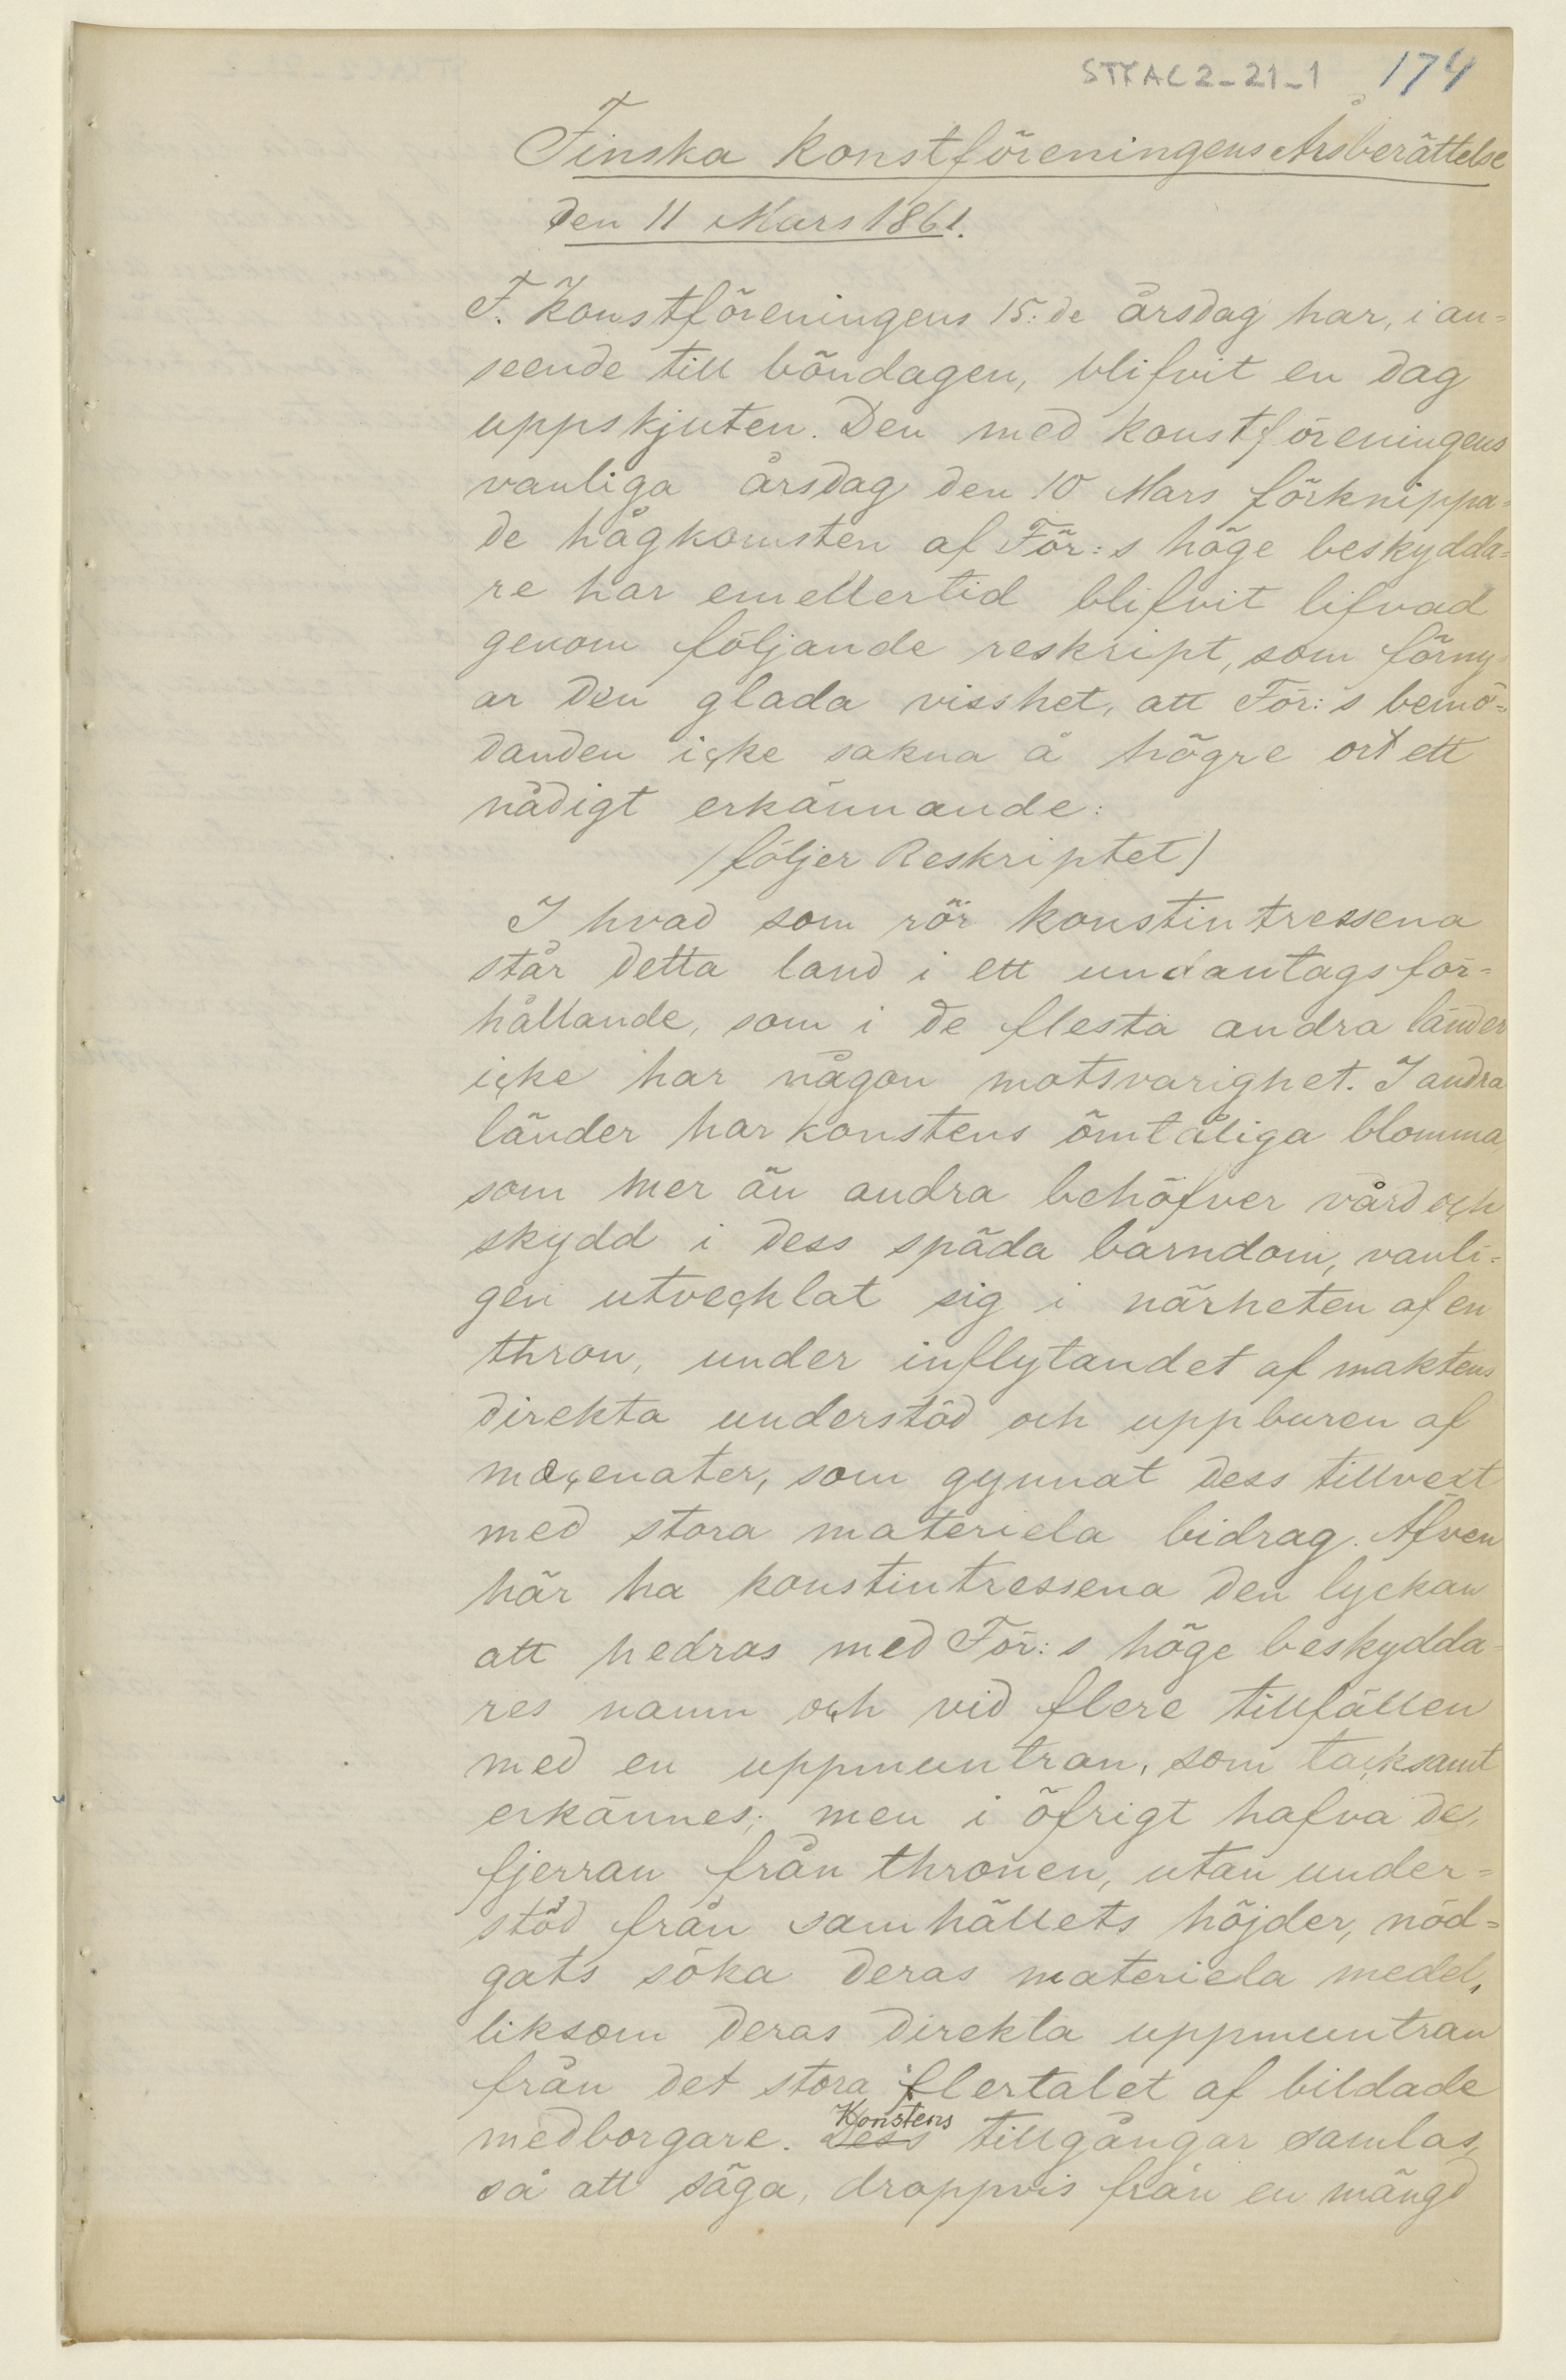 STYAC2-21-1 174
Finska Konstföreningens Årsberättelse
den 11 Mars 1861.
F. Konstföreningens 15:de årsdag har, i an=
seende till böndagen, blifvit en dag
uppskjuten. Den med Konstföreningens
vanliga årsdag den 10 Mars förknippa=
de hågkomsten af För:s höge beskydda=
re har emellertid blifvit lifvad
genom följande reskript, som förny
ar den glada visshet, att För:s bemö=
danden icke sakna å högre ort ett
nådigt erkännande:
(följer Reskriptet)
I hvad som rör konstintressena
står detta land i ett undantagsför=
hållande, som i de flesta andra länder
icke har någon motsvarighet. I andra
länder har konstens ömtåliga blomma,
som mer än andra behöfver vård och
skydd i dess späda barndom, vanli=
gen utvecklat sig i närheten af en
thron, under inflytandet af maktens
direkta understöd och uppburen af
mecenater, som gynnat dess tillvext
med stora materiela bidrag. Äfven
här ha konstintressena den lyckan
att hedras med För:s höge beskydda=
res namn och vid flere tillfällen
med en uppmuntran, som tacksamt
erkännes; men i öfrigt hafva de,
fjerran från thronen, utan under=
stöd från samhällets höjder, nöd=
gats söka deras materiela medel,
liksom deras direkta uppmuntran
från det stora flertalet af bildade
medborgare. Dess Konstens tillgångar samlas,
så att säga, droppvis från en mängd